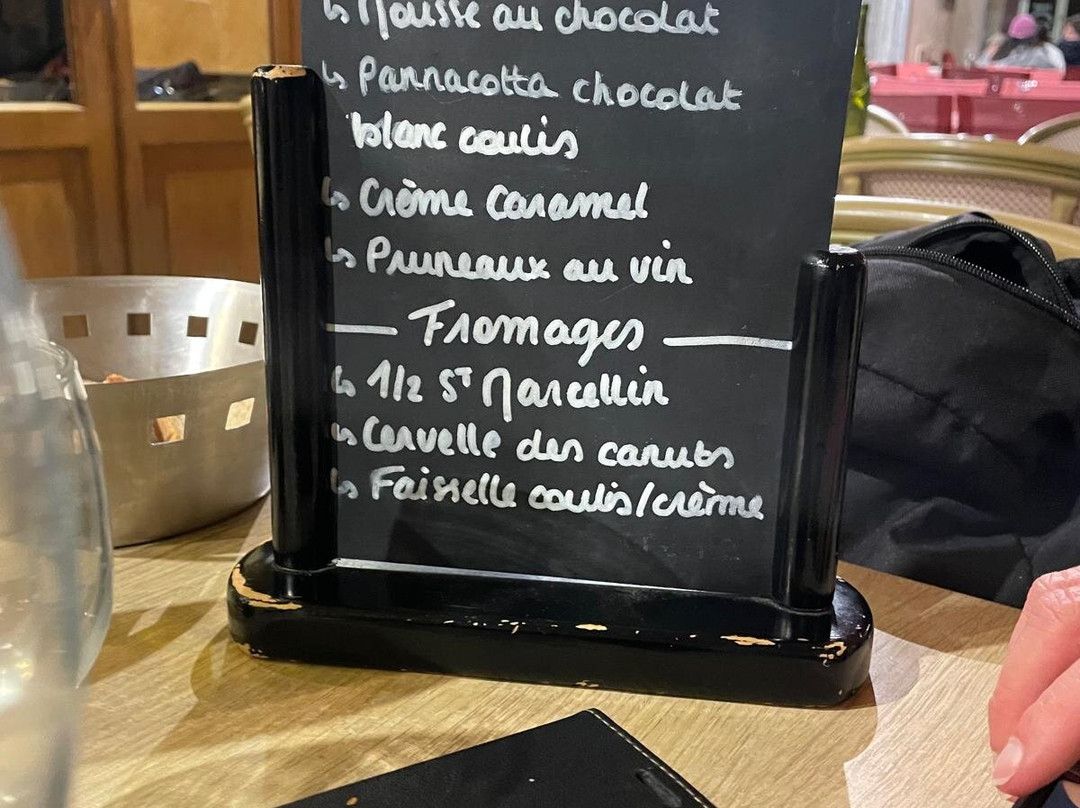 ↳ Mousse au chocolat
↳ Pannacotta chocolat
blanc coulis
↳ Crème caramel
↳ Pruneaux au vin
— Fromages —
↳ 1/2 St Marcellin
↳ Cervelle des canuts
↳ Faisselle coulis/crème